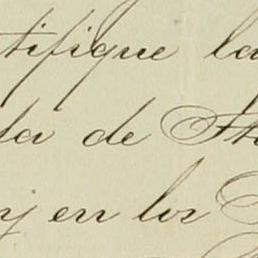 tifique la
da de
en los